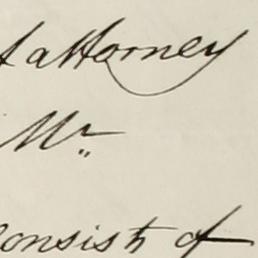 attorney
Mr
consists of